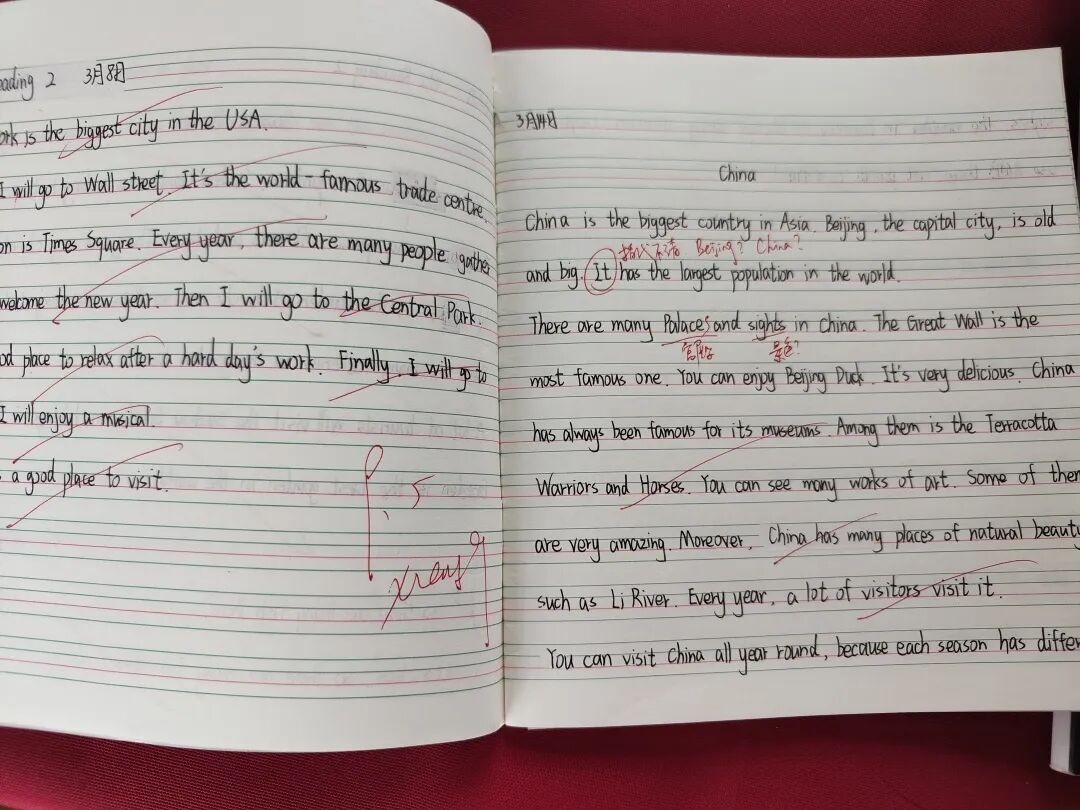 eading 2 3月8日
ork is the biggest city in the USA.
I will go to Wall street. It's the world-famous trade centre.
on is Times Square. Every year, there are many people gather
welcome the new year. Then I will go to the Central Park.
od place to relax after a hard day's work. Finally, I will go to
I will enjoy a musical.
a good place to visit.
3月14日
China
China is the biggest country in Asia. Beijing, the capital city, is old
指代不清 Beijing? China?
and big. It has the largest population in the world.
There are many Palaces and sights in China. The Great Wall is the
宫殿 景色?
most famous one. You can enjoy Beijing Duck. It's very delicious. China
has always been famous for its museums. Among them is the Terracotta
Warriors and Horses. You can see many works of art. Some of them
are very amazing. Moreover, China has many places of natural beauty
such as Li River. Every year, a lot of visitors visit it.
You can visit China all year round, because each season has differ